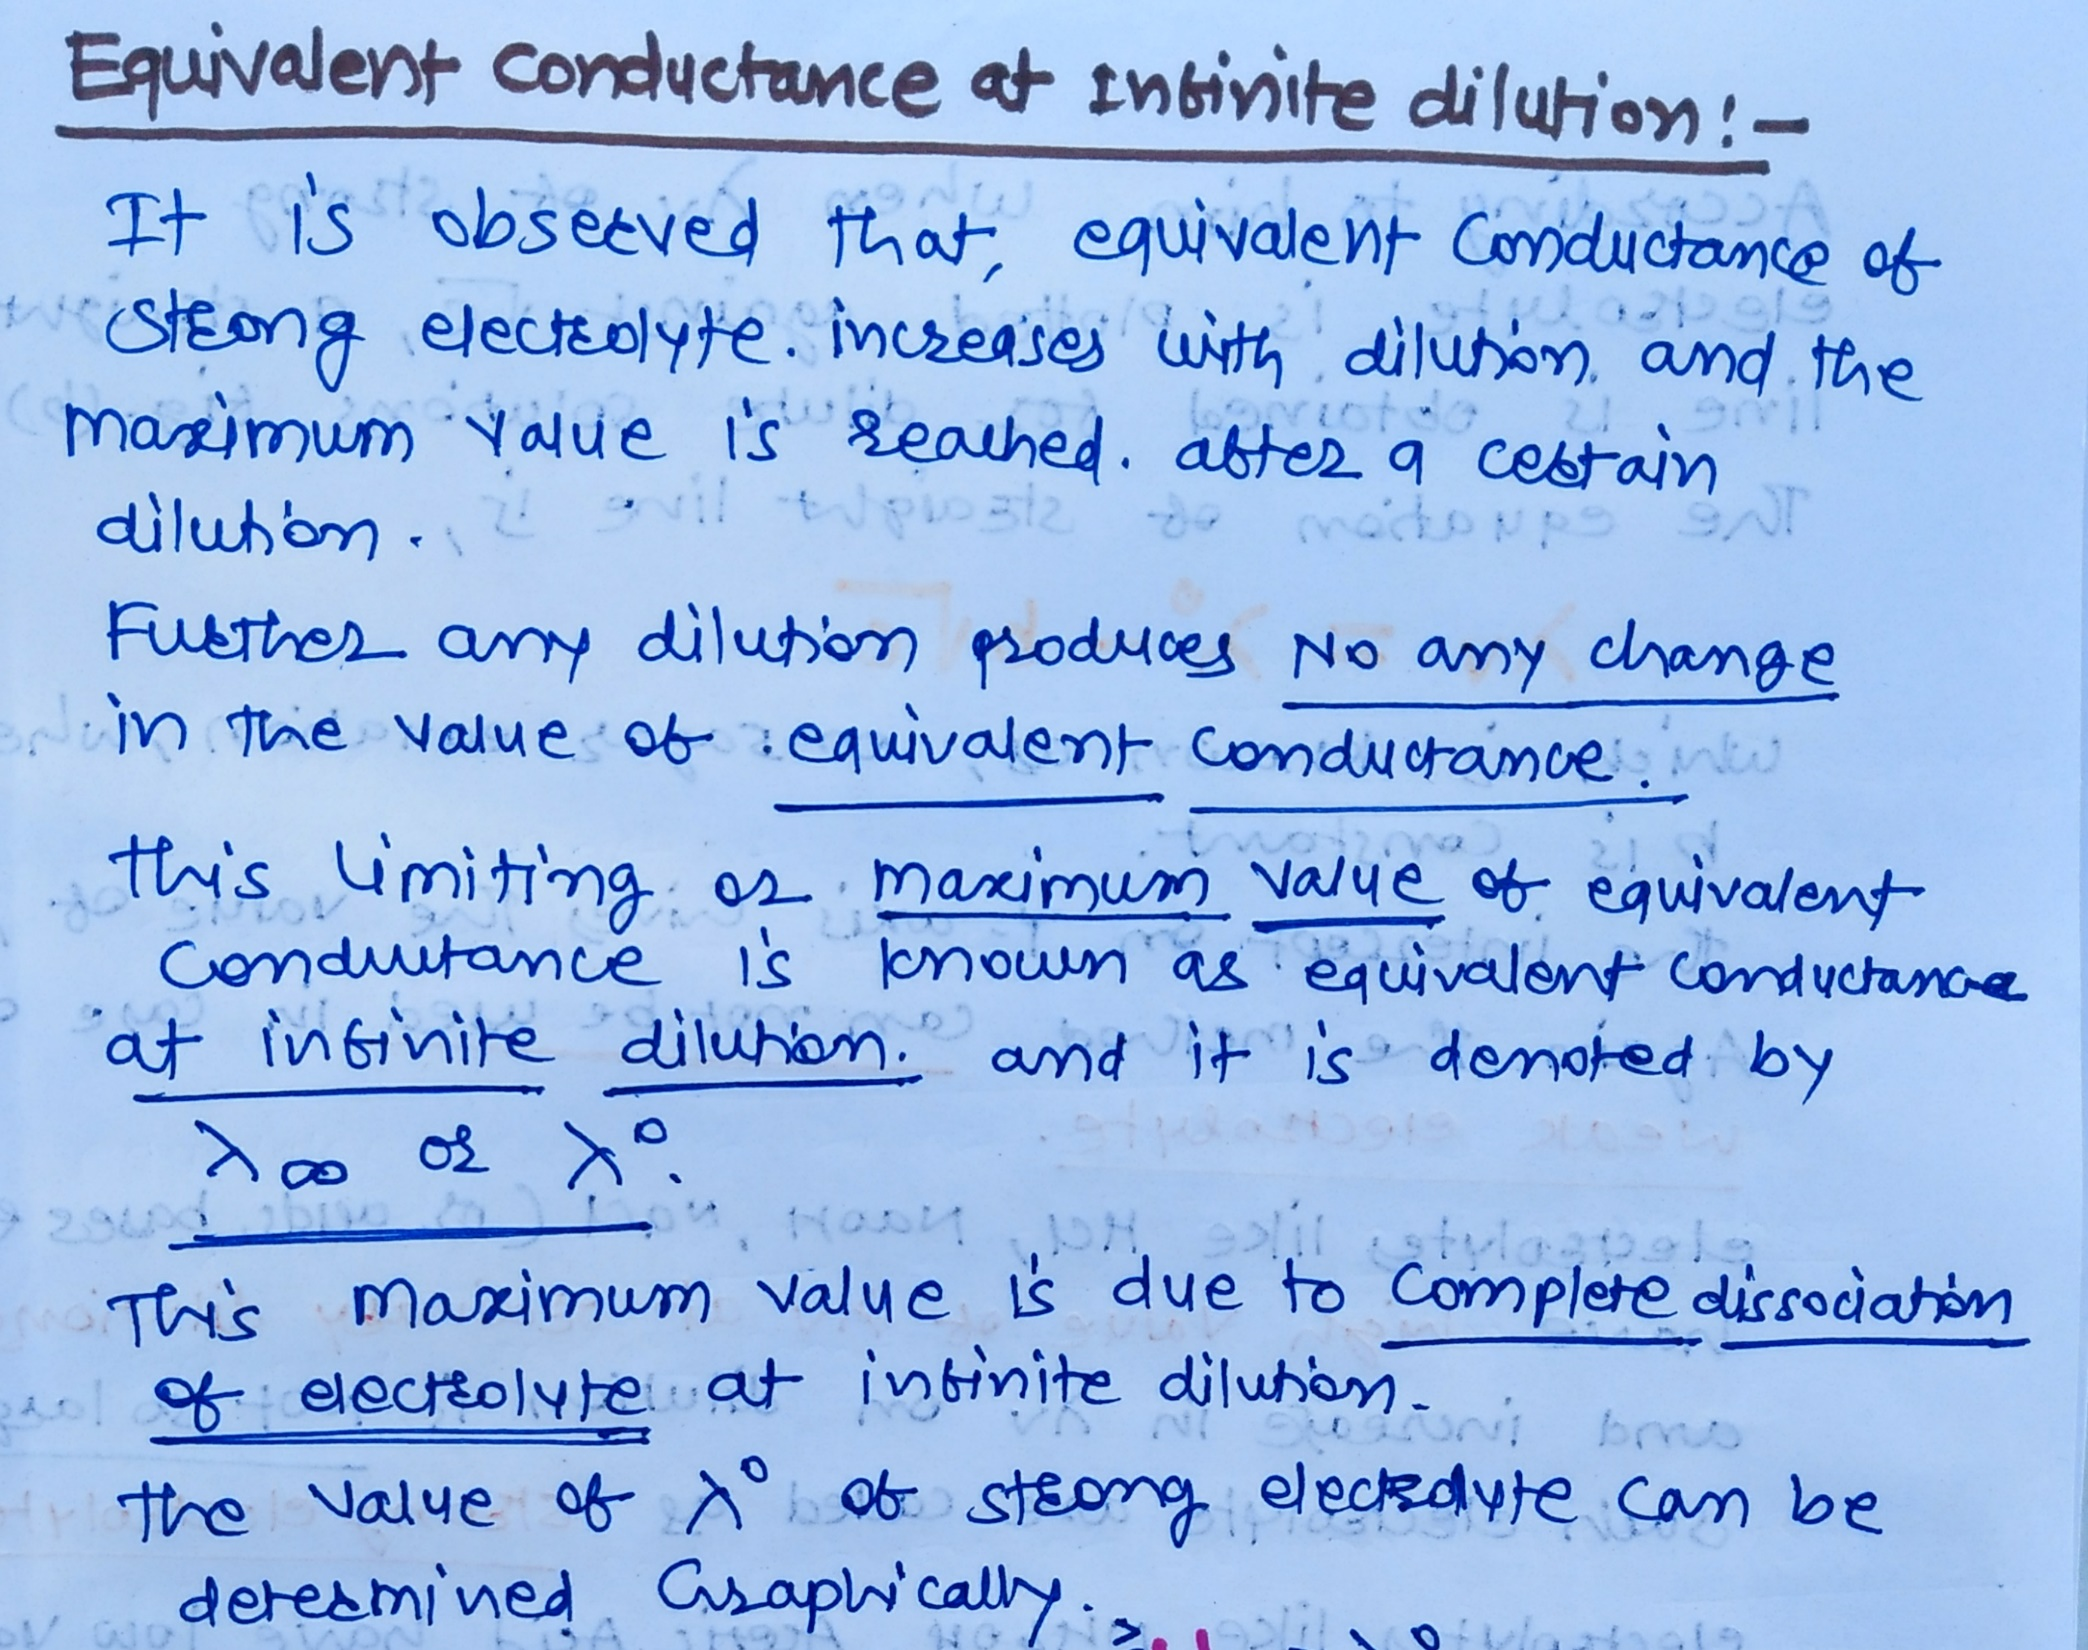 Equivalent Conductance at Infinite dilution:-
It is observed that, equivalent Conductance of
strong electrolyte. increases with dilution. and the
maximum value is reached. after a certain
dilution.
Further any dilution produces No any change
in the value of equivalent conductance.
This limiting or maximum value of equivalent
Conductance is known as equivalent conductance
at infinite dilution. and it is denoted by
λ∞ or λ°.
This maximum value is due to complete dissociation
of electrolyte at infinite dilution.
The value of λ° of strong electrolyte can be
determined Graphically.